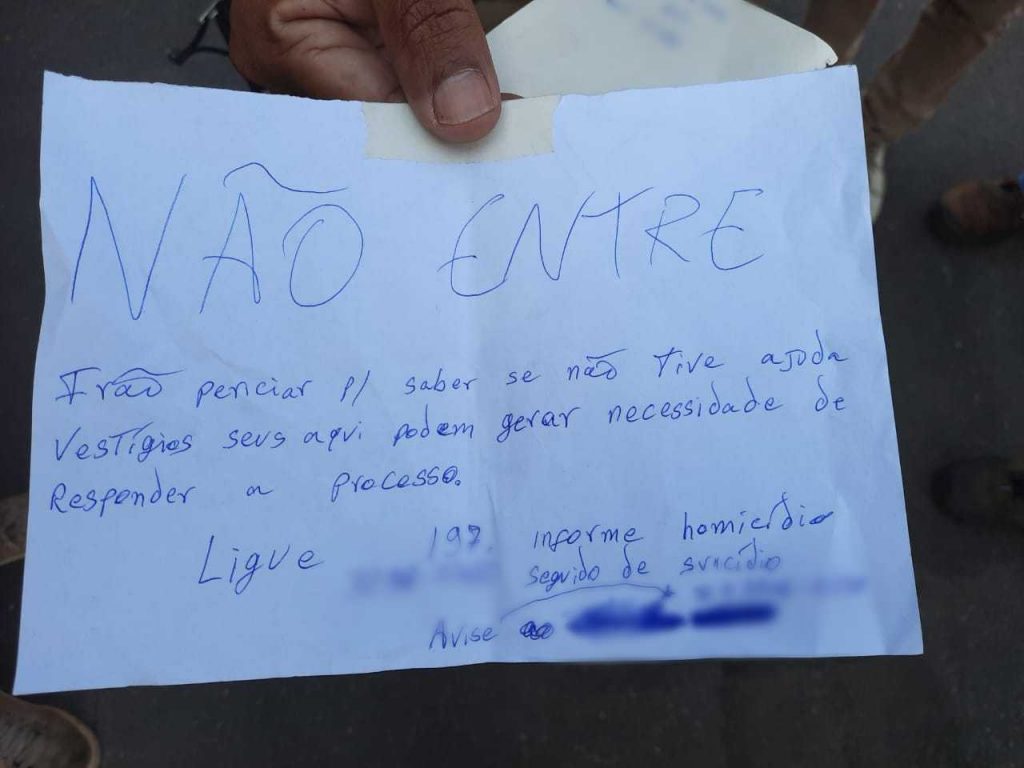 NÃO ENTRE
Irão periciar p/ saber se não tive ajuda
Vestígios seus aqui podem gerar necessidade de
Responder a processo.
Ligue 197. informe homicídio
seguido de suicídio
Avise